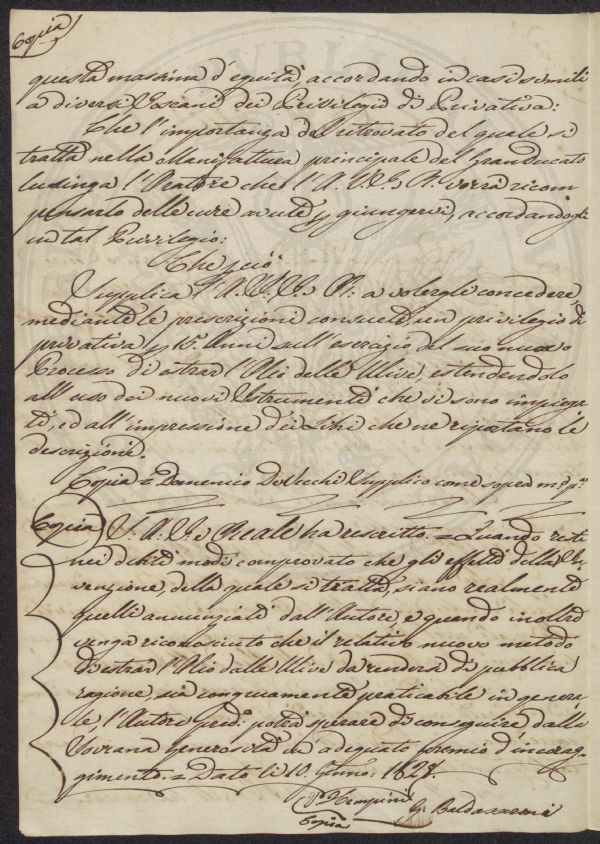 Copia
questa massima d'equità, accordando in casi simili
a diversi Toscani dei Privilegj di Privativa:
Che l'importanza del ritrovato del quale si
tratta nella Manifattura principale del Granducato
lusinga l'Oratore che l'A. V. I. e R. vorrà ricom
pensarlo delle cure avute p giungervi, accordandogli
un tal Privilegio:
Che perciò
Supplica l'A. V. I. e R. a volergli concedere,
mediante le prescrizioni consuete, un privilegio di
privativa p 15. Anni sull'esercizio del suo nuovo
Processo di estrar l'Olio delle Ulive, estendendolo
all'uso dei nuovi Istrumenti che vi sono impiega
ti, ed all'impressione dei Libri che ne riportano le
descrizioni.
Copia = Domenico De Vecchi Supplico come sopra m. p.
Copia S. A. I. e Reale ha rescritto = Quando resti
nei debiti modi comprovato che gli effetti della In
venzione, della quale si tratta, siano realmente
quelli annunziati dall'Autore, e quando inoltre
venga riconosciuto che il relativo nuovo metodo
di estrar l'Olio dalle Ulive da rendersi di pubblica
ragione, sia congruamente praticabile in genera
le, l'Autore pred. potrà sperare di conseguire dalla
Sovrana Generosità un adeguato premio d'incorag
gimento. = Dato li 10. Genn. 1827.
Copia
G. Baldasseroni